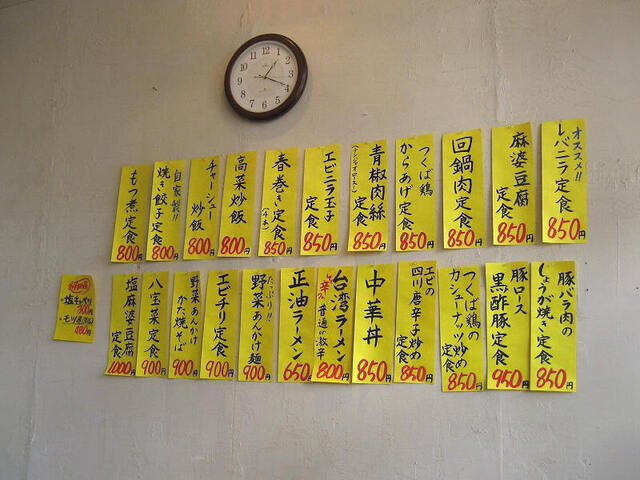 オススメ!!
レバニラ定食
850円
麻婆豆腐
定食
850円
回鍋肉定食
850円
つくば鶏
からあげ定食
850円
青椒肉絲
(チンジャオロース)
定食
850円
エビニラ玉子
定食
850円
春巻き定食
(4本)
850円
高菜炒飯
800円
チャーシュー
炒飯
800円
自家製!!
焼き餃子定食
800円
もつ煮定食
800円
豚バラ肉の
しょうが焼き定食
850円
豚ロース
黒酢酢豚定食
950円
つくば鶏の
カシューナッツ炒め
定食
850円
エビの
四川唐辛子炒め
定食
850円
中華丼
850円
台湾ラーメン
普通の激辛
800円
正油ラーメン
650円
たっぷり!!
野菜あんかけ麺
900円
エビチリ定食
900円
野菜あんかけ
かた焼そば
900円
八宝菜定食
900円
塩麻婆豆腐
定食
1000円